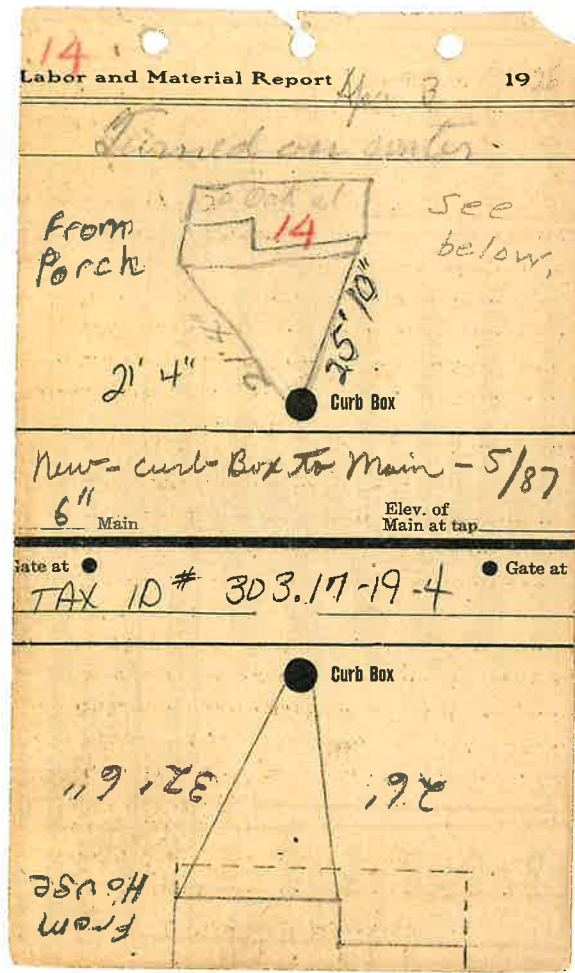 14
Labor and Material Report Apr 3 1926
Turned on water
20 Oak st
14
From
Porch
See
below,
21' 4"
25' 10"
21' 4"
Curb Box
New- curb Box to Main - 5/87
6" Main
Elev. of
Main at tap
Gate at
Gate at
TAX ID # 303.17-19-4
Curb Box
32' 6"
26'
From
House